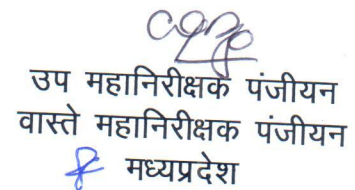 उप महानिरीक्षक पंजीयन
वास्ते महानिरीक्षक पंजीयन
मध्यप्रदेश